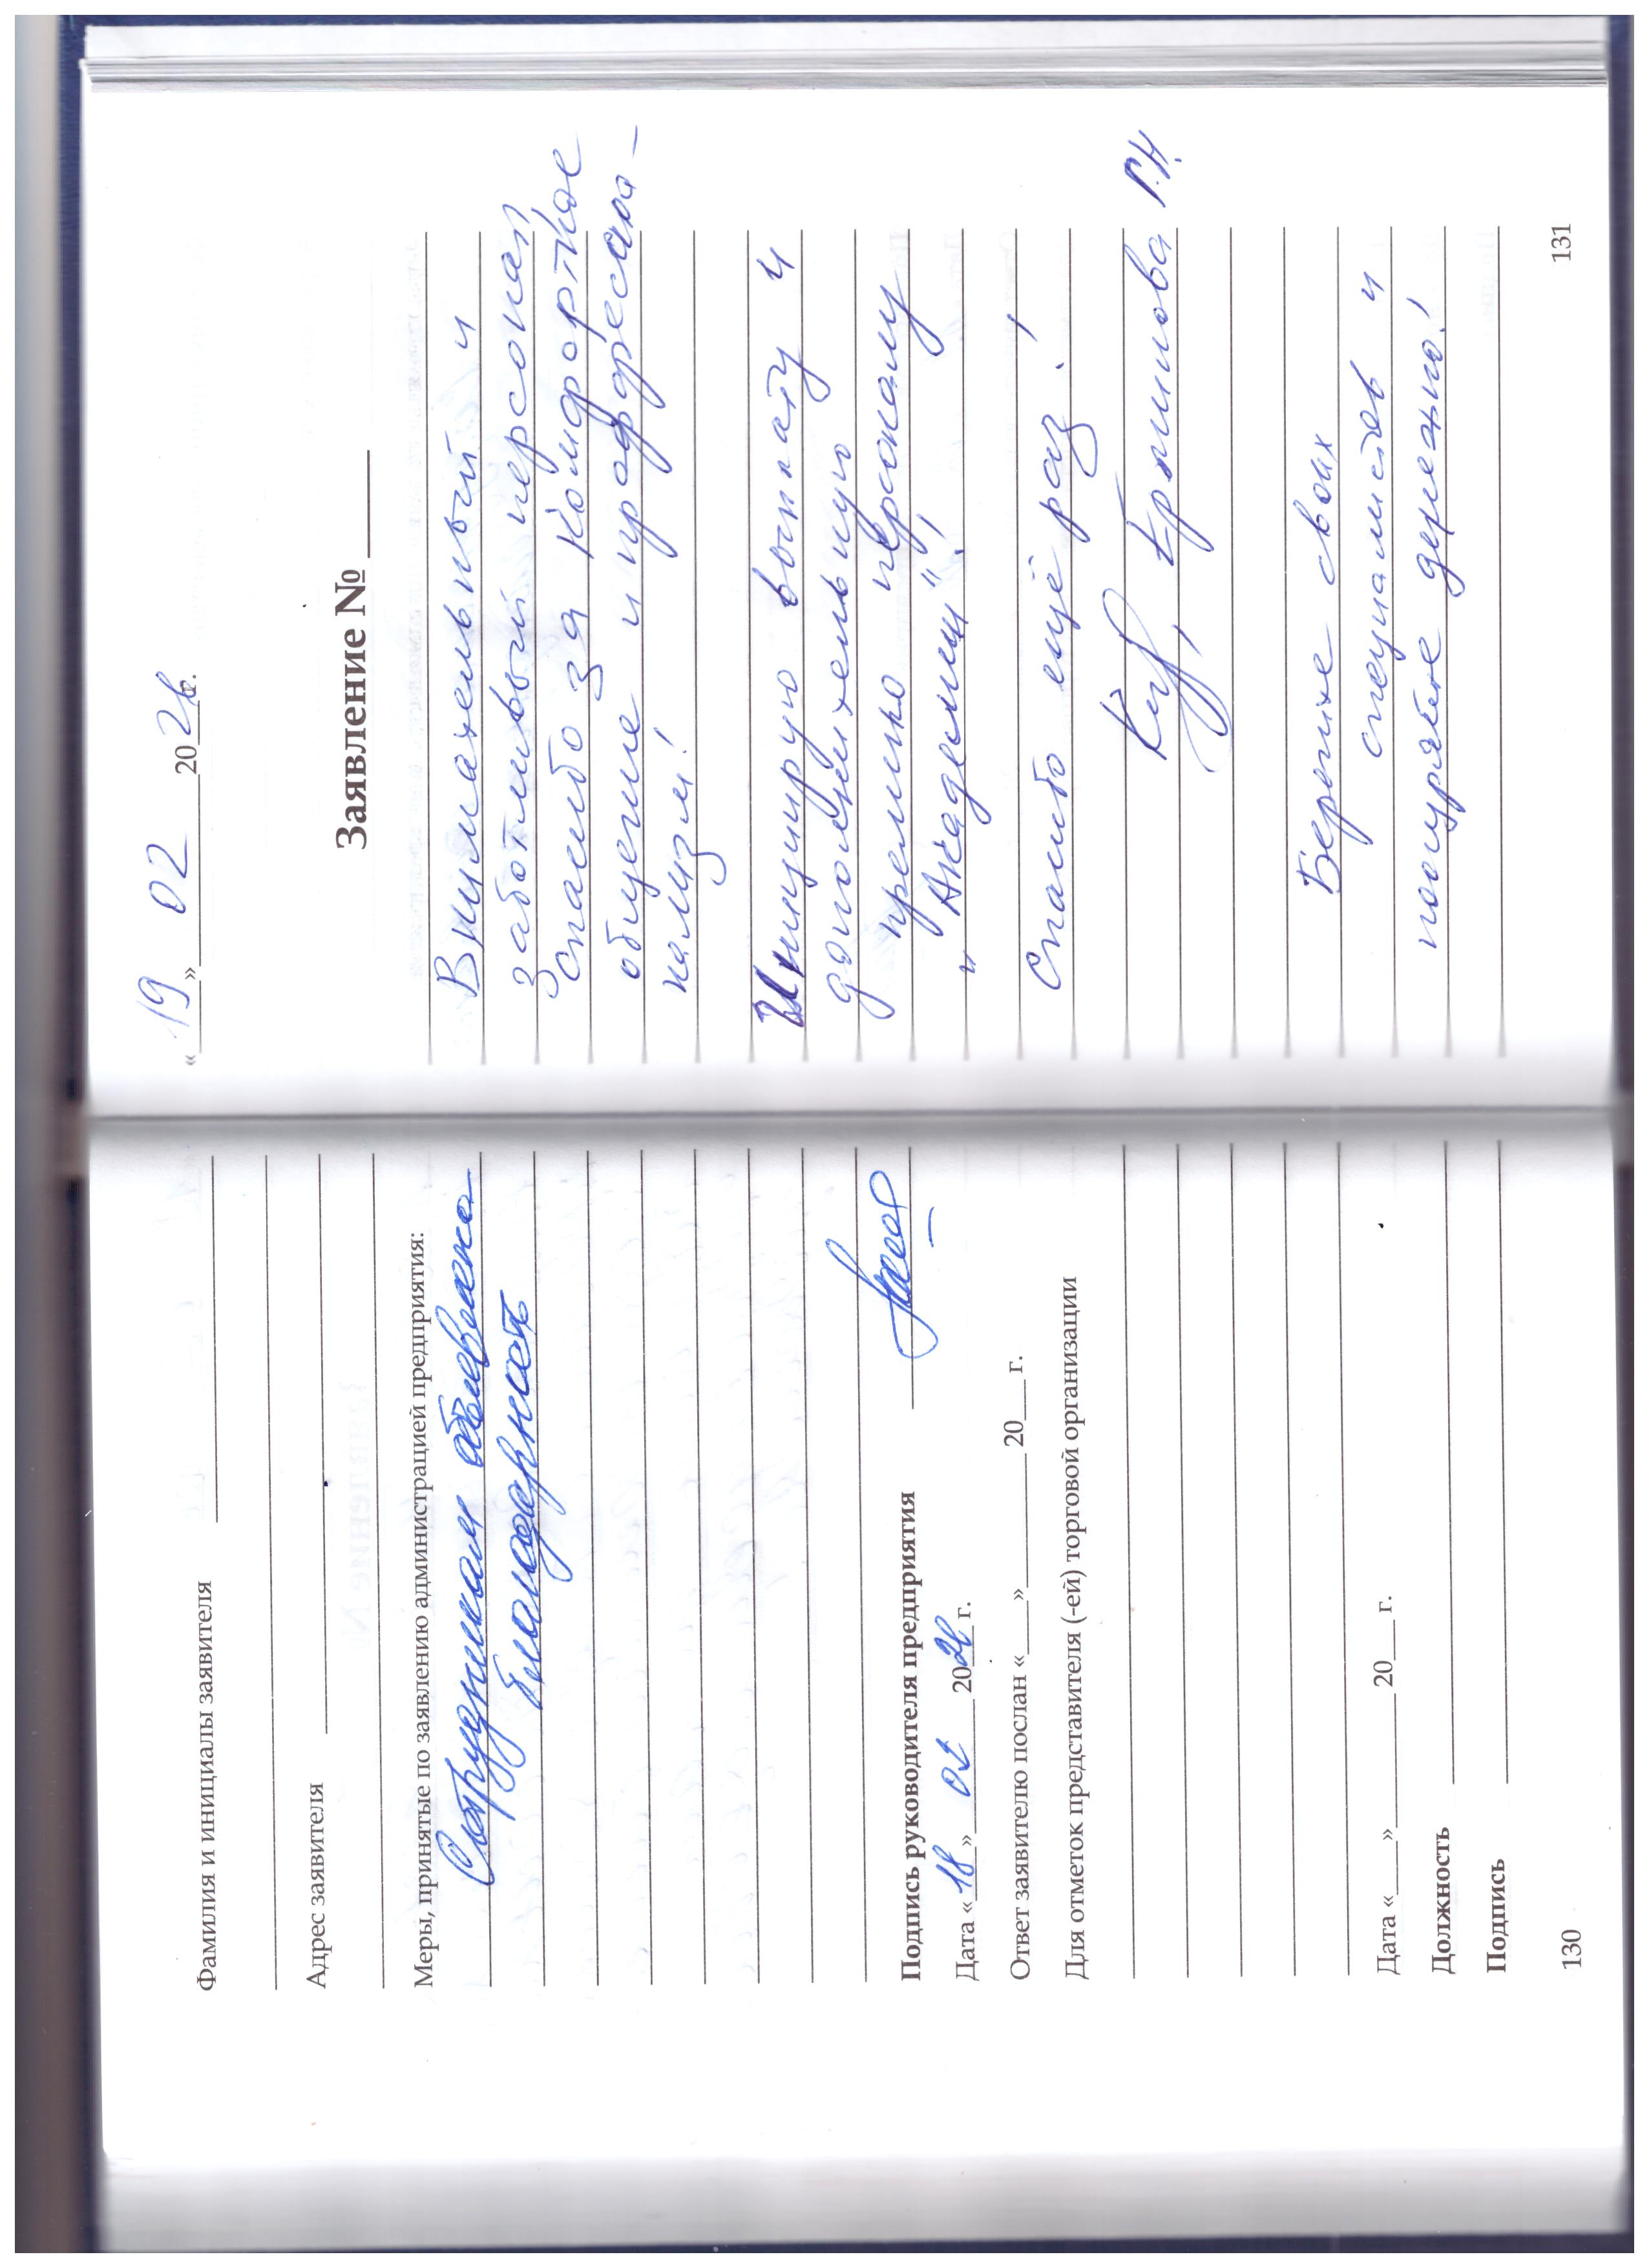 Фамилия и инициалы заявителя
Адрес заявителя
Меры, принятые по заявлению администрацией предприятия:
Сотрудникам объявлена
благодарность
Подпись руководителя предприятия
Дата «18» 02 2026 г.
Ответ заявителю послан «___» ______ 20___ г.
Для отметок представителя (-ей) торговой организации
Дата «___» ______ 20___ г.
Должность
Подпись
130
«19» 02 2026 г.
Заявление № ____
Внимательный и
заботливый персонал
Спасибо за комфортное
общение и профессиона-
нализм!
Инициирую выплату и
дополнительную
премию персоналу
"Академии"!
Спасибо ещё раз!
Г.Н.
Берегите своих
специалистов и
поощряйте денежно!
131